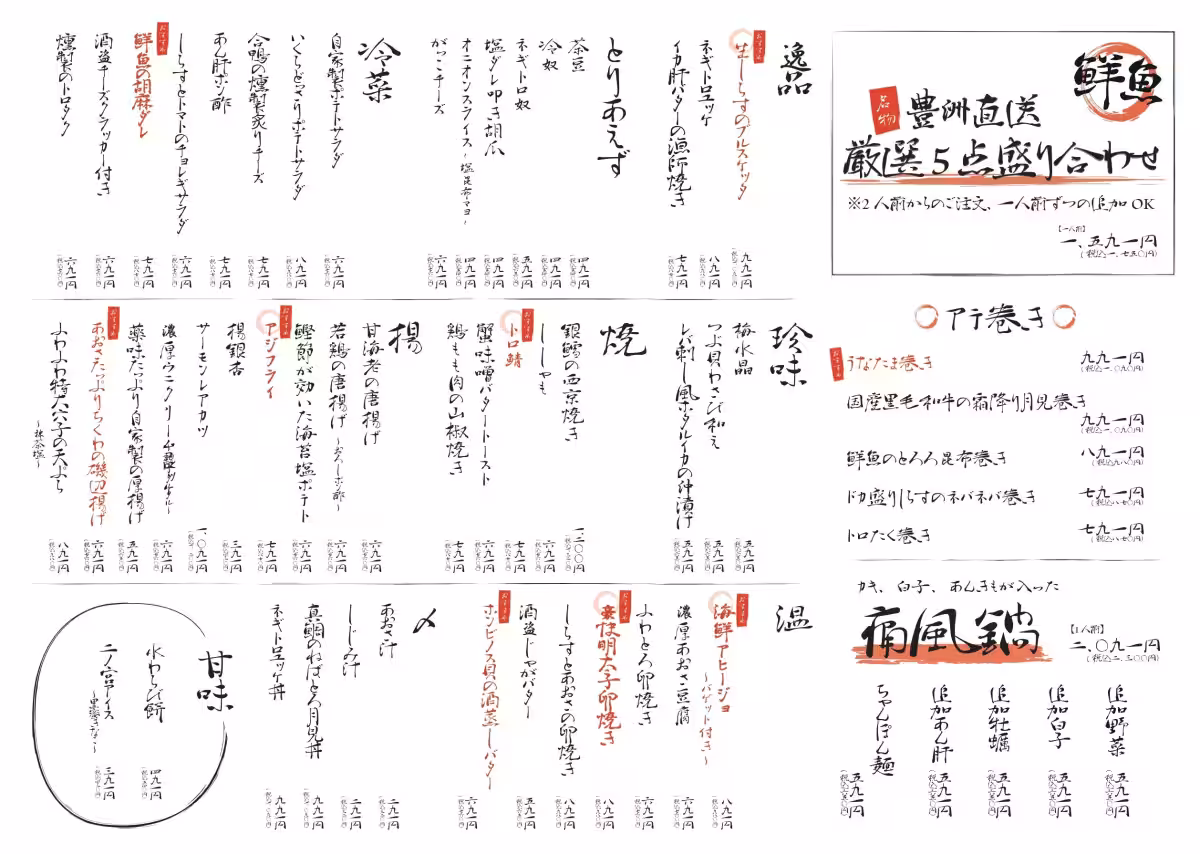 鮮魚
名物
豊洲直送
厳選5点盛り合わせ
※2人前からのご注文、一人前ずつの追加OK
【一人前】
一、五九一円
(税込一、七五〇円)
アテ巻き
おすすめ
うなたま巻き 九九一円
(税込一、〇九〇円)
国産黒毛和牛の霜降り月見巻き
九九一円
(税込一、〇九〇円)
鮮魚のとろろ昆布巻き 八九一円
(税込九八〇円)
ドカ盛りしらすのネバネバ巻き 七九一円
(税込八七〇円)
トロたく巻き 七九一円
(税込八七〇円)
カキ、白子、あんきもが入った
痛風鍋
【1人前】
二、〇九一円
(税込二、三〇〇円)
追加野菜 五九一円
追加白子 五九一円
追加牡蠣 五九一円
追加あん肝 五九一円
ちゃんぽん麺 五九一円
逸品
おすすめ
生しらすのブルスケッタ 九九一円
ネギトロユッケ 八九一円
イカ肝バターの漁師焼き 七九一円
とりあえず
茶豆 四九一円
冷奴 四九一円
ネギトロ奴 五九一円
塩ダレ叩き胡瓜 四九一円
オニオンスライス~塩昆布マヨ~ 四九一円
がっこチーズ 六九一円
冷菜
自家製ポテトサラダ 六九一円
いくらどっさりポテトサラダ 八九一円
合鴨の燻製炙りチーズ 七九一円
あん肝ポン酢 七九一円
しらすとトマトのチョレギサラダ 六九一円
おすすめ
鮮魚の胡麻ダレ 七九一円
酒盗チーズクラッカー付き 六九一円
燻製のトロタク 六九一円
珍味
梅水晶 五九一円
つぶ貝わさび和え 五九一円
レバ刺し風ホタルイカの沖漬け 五九一円
焼
銀鱈の西京焼き 一、二〇〇円
ししゃも 六九一円
おすすめ
トロ鯖 七九一円
蟹味噌バタートースト 六九一円
鶏もも肉の山椒焼き 七九一円
揚
甘海老の唐揚げ 六九一円
若鶏の唐揚げ ~おろしポン酢~ 六九一円
鰹節が効いた海苔塩ポテト 六九一円
おすすめ
アジフライ 七九一円
揚銀杏 三九一円
サーモンレアカツ 一、〇九一円
濃厚ウニクリーム 六九一円
薬味たっぷり自家製の厚揚げ 五九一円
おすすめ
あおさたっぷりちくわの磯辺揚げ 六九一円
ふわふわ特大穴子の天ぷら 八九一円
~抹茶塩~
温
おすすめ
海鮮アヒージョ 八九一円
~バゲット付き~
濃厚あおさ豆腐 六九一円
ふわとろ卵焼き 六九一円
おすすめ
豪快明太子卵焼き 八九一円
しらすとあおさの卵焼き 八九一円
酒盗じゃがバター 五九一円
おすすめ
ホンビノス貝の酒蒸しバター 六九一円
〆
あおさ汁 二九一円
しじみ汁 二九一円
真鯛のねばとろ月見丼 九九一円
ネギトロユッケ丼 九九一円
甘味
水わらび餅 四九一円
二ノ宮アイス 三九一円
~黒蜜きなこ~